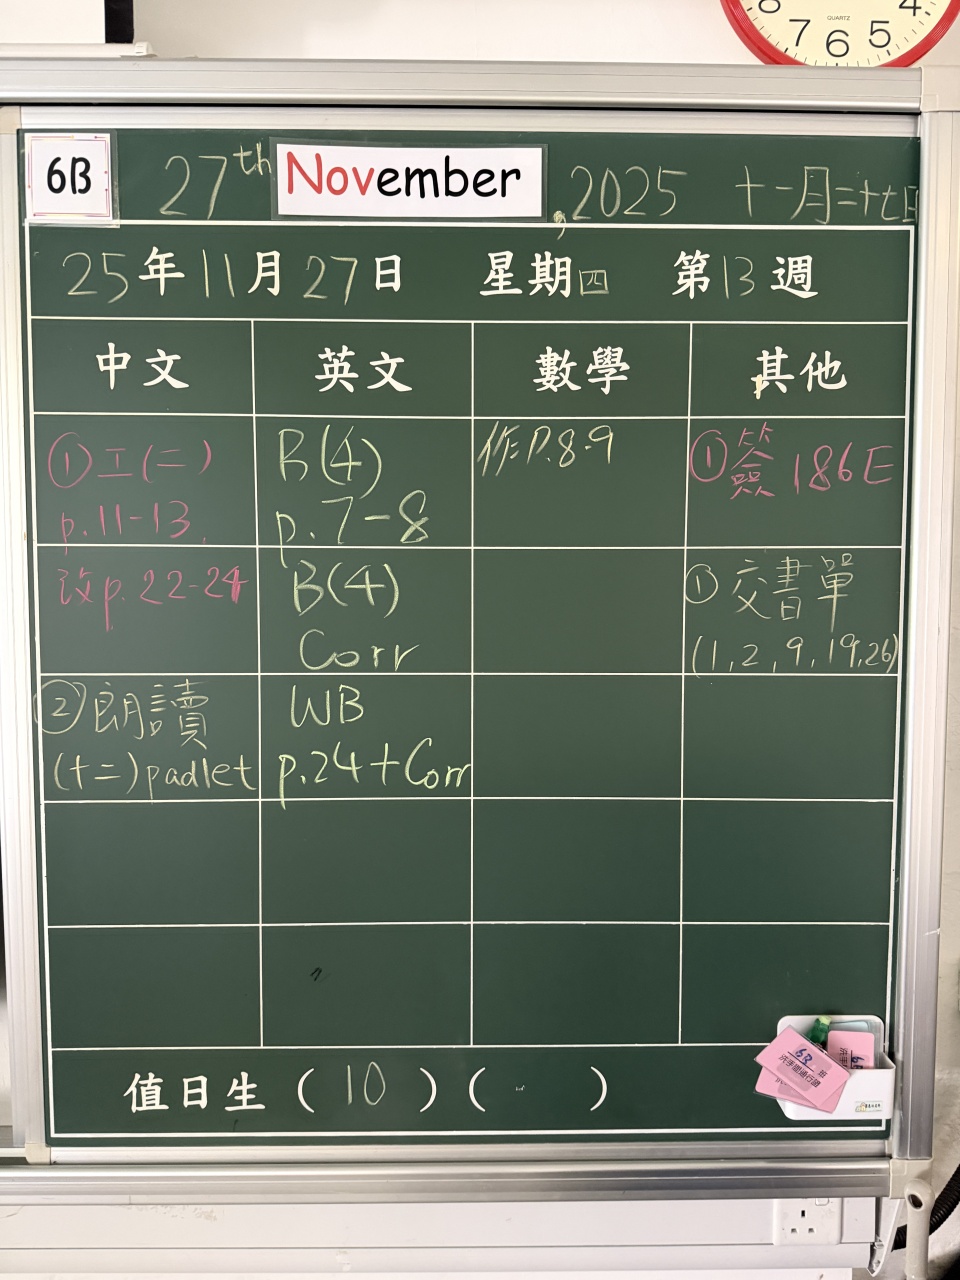 QUARTZ
8 7 6 5 4
6B
27th November, 2025 十一月二十七日
25年11月27日 星期四 第13週
中文 英文 數學 其他
①工(二)
p.11-13
B(4)
p.7-8
作P.8-9
①簽186E
改p.22-24
B(4)
Corr
①交書單
(1,2,9,19,26)
②朗讀
(十二)padlet
WB
p.24+Corr
值日生(10)( )
6B班
洗手間通行證